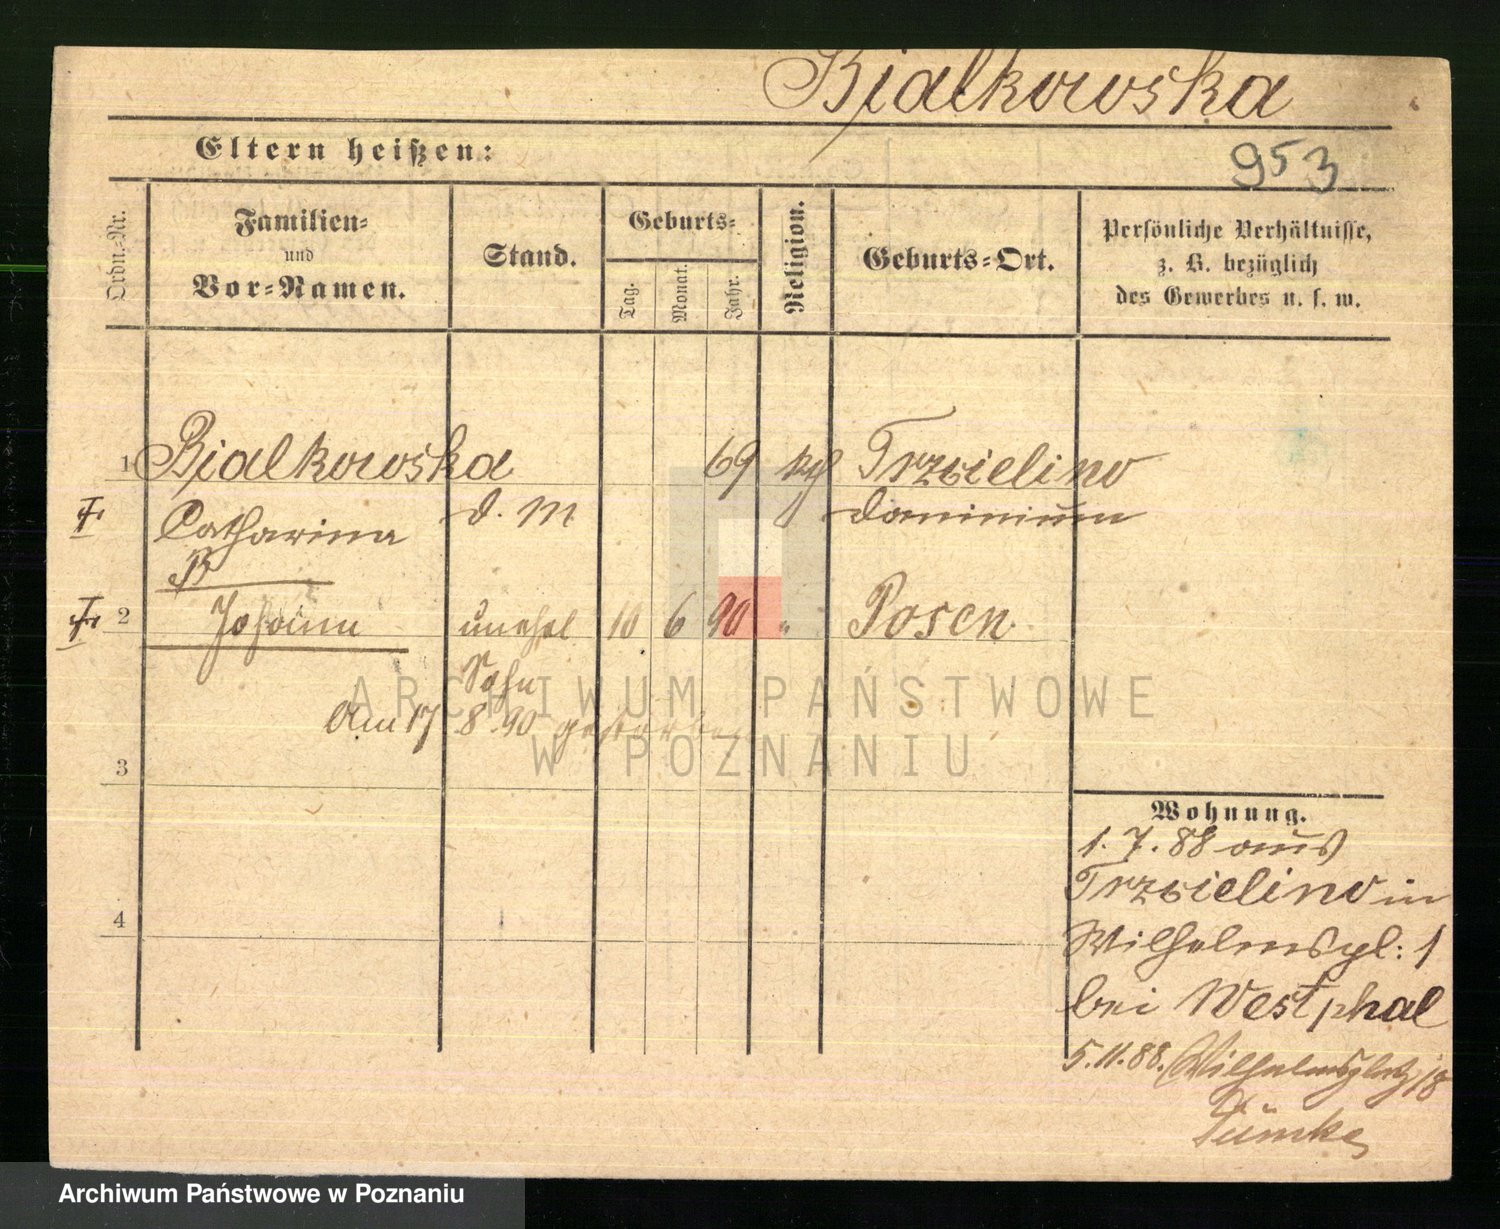 Bialkowska
Eltern heißen:
953
Ordn.-Nr.
Familien-
und
Vor-Namen.
Stand.
Geburts-
Tag.
Monat.
Jahr.
Religion.
Geburts-Ort.
Persönliche Verhältnisse,
z. B. bezüglich
des Gewerbes u. s. w.
1 Bialkowska 69 Trzcielino
Catharina d. M Dominium
2 Johann unehel 10 6 90 " Posen
Sohn
Am 17 8. 90 gestorben
3
4
Wohnung.
1. 7. 88 aus
Trzcielino in
Wilhelmspl: 1
bei Westphal
5.11.88. Wilhelmsplatz 18
ARCHIWUM PAŃSTWOWE
W POZNANIU
Archiwum Państwowe w Poznaniu